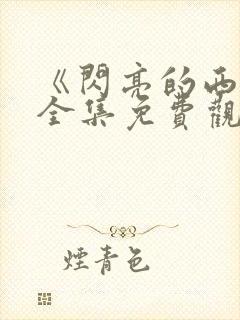 《閃亮的西
全集免費觀
煙青色